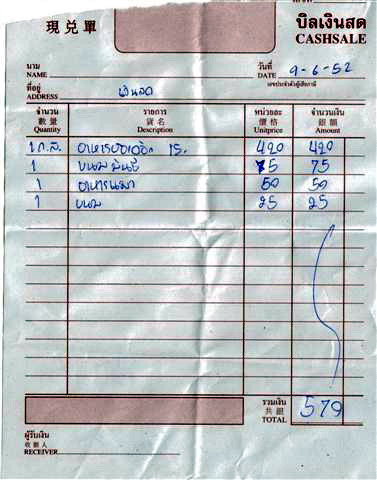 現兑單 บิลเงินสด
CASHSALE
นาม
NAME
วันที่
DATE 9-6-52
เลขประจำตัวผู้เสียภาษี
ที่อยู่
ADDRESS เงินสด
จำนวน รายการ หน่วยละ จำนวนเงิน
數量 貨名 價格 銀額
Quantity Description Unitprice Amount
1 ก.ส. 420 420
1 ขนม 75 75
1 อาหาร 50 50
1 ขนม 25 25
รวมเงิน
共銀
TOTAL 579
ผู้รับเงิน
收銀人
RECEIVER